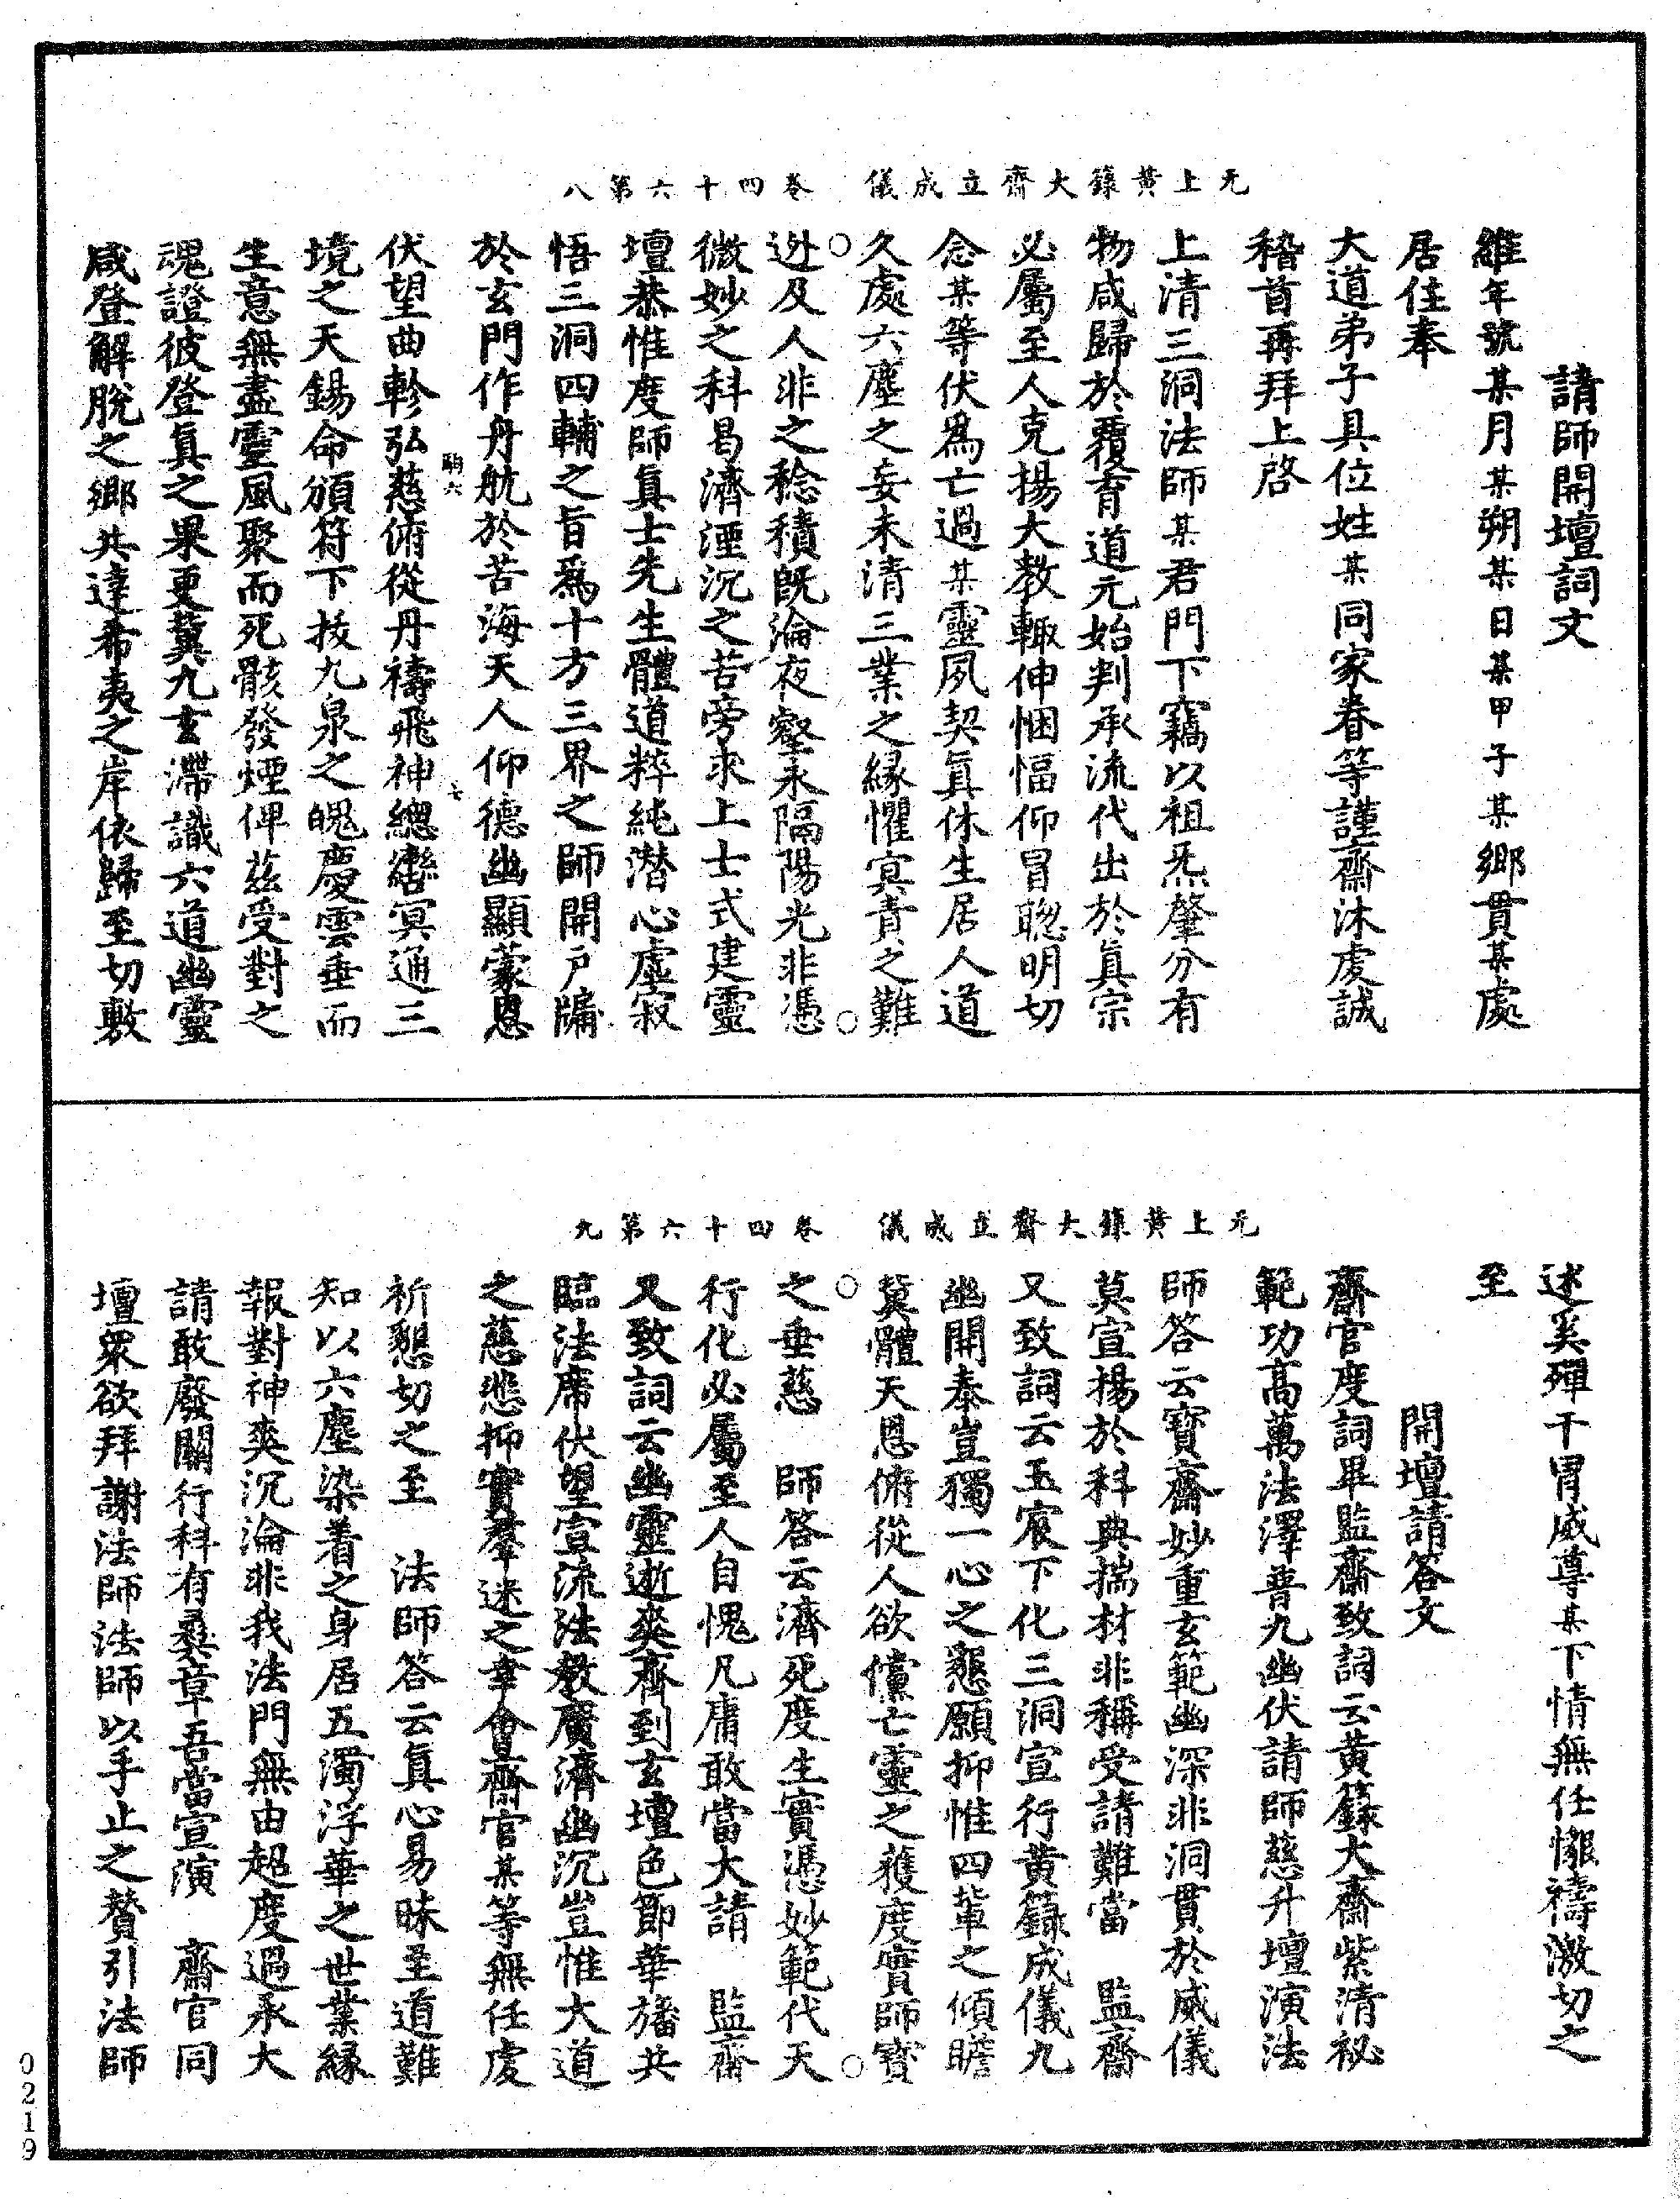 无上黃籙大齋立成儀　卷四十六第八
請師開壇詞文
維年號某月某朔某日某甲子某鄉貫某處
居住奉
大道弟子具位姓某同家眷等謹齋沐虔誠
稽首再拜上啓
上清三洞法師某君門下竊以祖炁肇分有
物咸歸於覆育道元始判承流代出於眞宗
必屬至人克揚大教輙伸悃愊仰冒聦明切
念某等伏爲亡過某靈夙契眞休生居人道
久處六塵之妄未清三業之緣懼冥責之難
逃及人非之稔積旣淪夜壑永隔陽光非憑
微妙之科曷濟湮沉之苦旁求上士式建靈
壇恭惟度師眞士先生體道粹純潛心虛寂
悟三洞四輔之旨爲十方三界之師開戶牖
於玄門作舟航於苦海天人仰德幽顯蒙恩
伏望曲軫弘慈俯從丹禱飛神總轡冥通三
境之天錫命頒符下拔九泉之魄慶雲垂而
生意無盡靈風聚而死骸發煙俾茲受對之
魂證彼登眞之果更冀九玄滯識六道幽靈
咸登解脫之鄉共達希夷之岸依歸至切敷
无上黃籙大齋立成儀　卷四十六第九
述奚殫干冒威尊某下情無任懇禱激切之
至
開壇請答文
齋官度詞畢監齋致詞云黃籙大齋紫清祕
範功高萬法澤普九幽伏請師慈升壇演法
師答云寶齋妙重玄範幽深非洞貫於威儀
莫宣揚於科典揣材非稱受請難當　監齋
又致詞云玉宸下化三洞宣行黃籙成儀九
幽開泰豈獨一心之懇願抑惟四輩之傾瞻
冀體天恩俯從人欲儻亡靈之獲度實師寶
之垂慈　師答云濟死度生實憑妙範代天
行化必屬至人自愧凡庸敢當大請　監齋
又致詞云幽靈逝爽齊到玄壇色節華旛共
臨法席伏望宣流法教廣濟幽沉豈惟大道
之慈悲抑實羣迷之幸會齋官某等無任虔
祈懇切之至　法師答云眞心易昧至道難
知以六塵染着之身居五濁浮華之世業緣
報對神爽沉淪非我法門無由超度過承大
請敢廢關行科有彝章吾當宣演　齋官同
壇衆欲拜謝法師法師以手止之贊引法師
0219